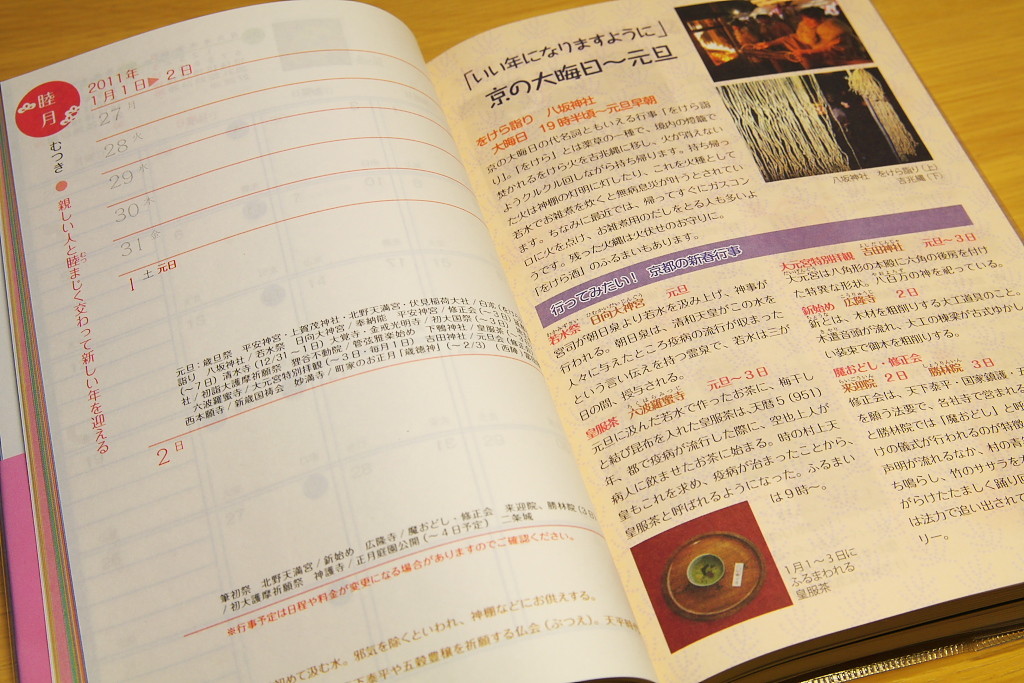 睦月
むつき ● 親しい人と睦まじく交わって新しい年を迎える
2011年
1月1日▶2日
27 月
28 火
29 水
30 木
31 金
1 土 元日
2 日
元日：歳旦祭 平安神宮・上賀茂神社・北野天満宮・伏見稲荷大社
詣り 八坂神社／若水祭 日向大神宮／奉納能 平安神宮／修正会
六波羅蜜寺／大元宮特別拝観（～3日・毎月1日） 吉田神社／元旦会
西本願寺／新歳国祷会 妙満寺／町家のお正月「歳徳神」（～2/3）
筆初祭 北野天満宮／釿始め 広隆寺／魔おどし・修正会 来迎院、勝林院
／初大護摩祈願祭 神護寺／正月庭園公開（～4日予定） 二条城
※行事予定は日程や料金が変更になる場合がありますのでご確認ください。
めて汲む水。邪気を除くといわれ、神棚などにお供えする。
下泰平や五穀豊穣を祈願する仏会（ぶつえ）。
「いい年になりますように」
京の大晦日～元旦
をけら詣り 八坂神社
大晦日 19時半頃～元旦早朝
京の大晦日の代名詞ともいえる行事「をけら詣
り」。「をけら」とは薬草の一種で、境内の燈籠で
焚かれるをけら火を吉兆縄に移し、火が消えない
ようクルクル回しながら持ち帰ります。持ち帰っ
た火は神棚の灯明に灯したり、これを火種として
若水でお雑煮を炊くと無病息災が叶うとされてい
ます。ちなみに最近では、帰ってすぐにガスコン
ロに火を点け、お雑煮用のだしをとる人も多いよ
うです。残った火縄は火伏せのお守りに。
「をけら酒」のふるまいもあります。
八坂神社 をけら詣り（上）
吉兆縄（下）
行ってみたい！ 京都の新春行事
若水祭 日向大神宮 元日
宮司が朝日泉より若水を汲み上げ、神事が
行われる。朝日泉は、清和天皇がこの水を
人々に与えたところ疫病の流行が収まった
という言い伝えを持つ霊泉で、若水は三が
日の間、授与される。
皇服茶 六波羅蜜寺 元日～3日
元日に汲んだ若水で作ったお茶に、梅干し
と結び昆布を入れた皇服茶は、天暦5（951）
年、都で疫病が流行した際に、空也上人が
病人に飲ませたお茶に始まる。時の村上天
皇もこれを求め、疫病が治まったことから、
皇服茶と呼ばれるようになった。ふるまい
は9時～。
1月1～3日に
ふるまわれる
皇服茶
大元宮特別拝観 吉田神社 元日～3日
大元宮は八角形の本殿に六角の後房を付け
た特異な形状。八百万の神を祀っている。
釿始め 広隆寺 2日
釿とは、木材を粗削りする大工道具のこと。
木遣音頭が流れ、大工の棟梁が古式ゆかし
い装束で御木を粗削りする。
魔おどし・修正会
来迎院 2日 勝林院 3日
修正会は、天下泰平・国家鎮護・五
を願う法要で、各社寺で営まれる
と勝林院では「魔おどし」と呼
けの儀式が行われるのが特徴
声明が流れるなか、村の青
ち鳴らし、竹のササラを
がらけたたましく踊り回
は法力で追い出されて
リー。